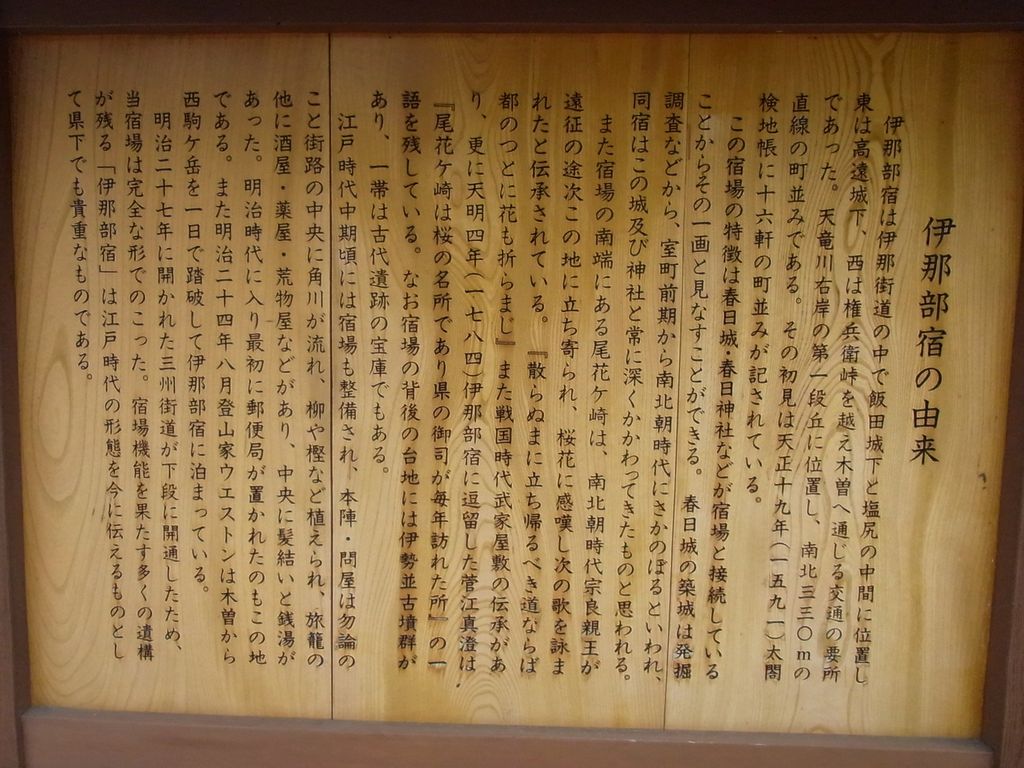 伊那部宿の由来
伊那部宿は伊那街道の中で飯田城下と塩尻の中間に位置し
東は高遠城下、西は権兵衛峠を越え木曽へ通じる交通の要所
であった。天竜川右岸の第一段丘に位置し、南北三三〇mの
直線の町並みである。その初見は天正十九年(一五九一)太閤
検地帳に十六軒の町並みが記されている。
この宿場の特徴は春日城・春日神社などが宿場と接続している
ことからその一画と見なすことができる。春日城の築城は発掘
調査などから、室町前期から南北朝時代にさかのぼるといわれ、
同宿はこの城及び神社と常に深くかかわってきたものと思われる。
また宿場の南端にある尾花ケ崎は、南北朝時代宗良親王が
遠征の途次この地に立ち寄られ、桜花に感嘆し次の歌を詠ま
れたと伝承されている。『散らぬまに立ち帰るべき道ならば
都のつとに花も折らまじ』また戦国時代武家屋敷の伝承があ
り、更に天明四年(一七八四)伊那部宿に逗留した菅江真澄は
『尾花ケ崎は桜の名所であり県の御司が毎年訪れた所』の一
語を残している。なお宿場の背後の台地には伊勢並古墳群が
あり、一帯は古代遺跡の宝庫でもある。
江戸時代中期頃には宿場も整備され、本陣・問屋は勿論の
こと街路の中央に角川が流れ、柳や樫など植えられ、旅籠の
他に酒屋・薬屋・荒物屋などがあり、中央に髪結いと銭湯が
あった。明治時代に入り最初に郵便局が置かれたのもこの地
である。また明治二十四年八月登山家ウエストンは木曽から
西駒ケ岳を一日で踏破して伊那部宿に泊まっている。
明治二十七年に開かれた三州街道が下段に開通したため、
当宿場は完全な形でのこった。宿場機能を果たす多くの遺構
が残る「伊那部宿」は江戸時代の形態を今に伝えるものとし
て県下でも貴重なものである。